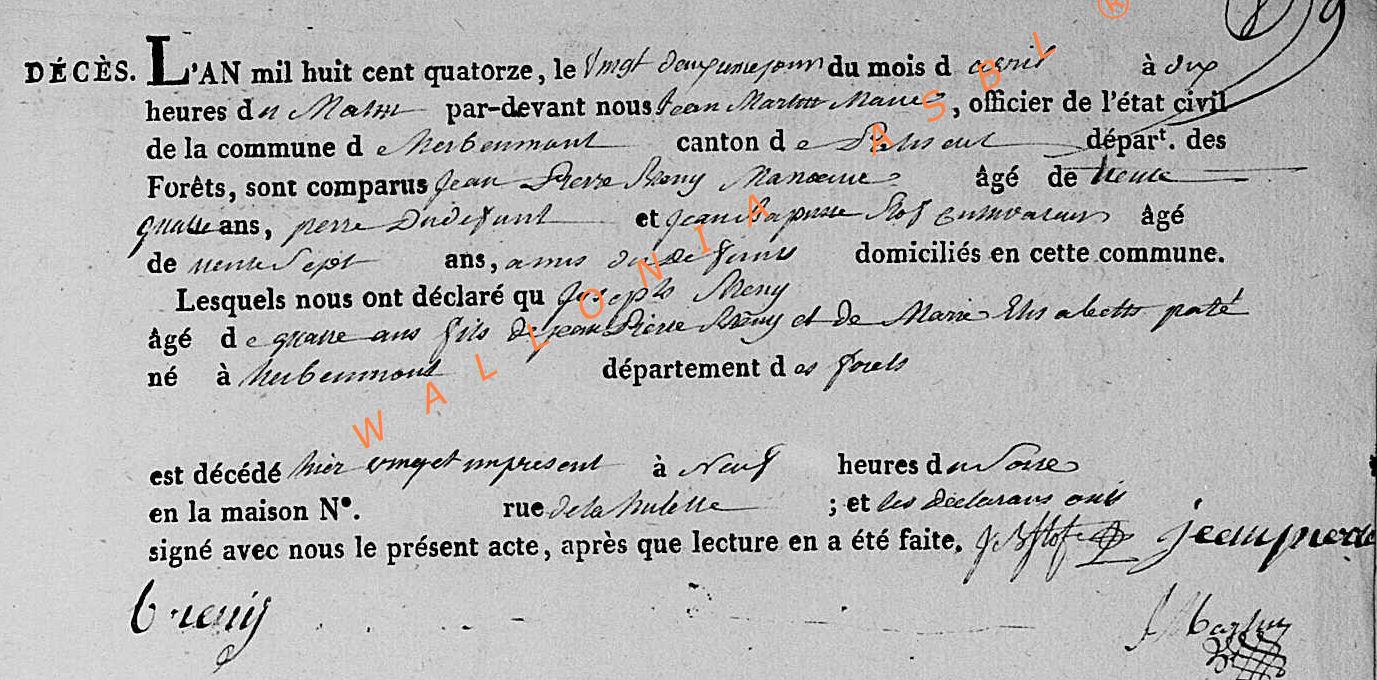 DÉCÈS. L'AN mil huit cent quatorze, le Vingt deuxieme jour du mois d avril à dix
heures du Matin par-devant nous Jean Martin Maire, officier de l'état civil
de la commune d e herbeumont canton d e Paliseul départ. des
Forêts, sont comparus Jean Pierre Remy Manoeuvre âgé de trente
quatre ans, pere Du defunt et Jean baptiste Stof âgé
de trente Sept ans, amis du defunt domiciliés en cette commune.
Lesquels nous ont déclaré qu Joseph Remy
âgé d e quatre ans fils de jean Pierre Remy et de Marie Elisabeth paté
né à herbeumont département d es forets
est décédé hier vingt un present à Neuf heures du Soire
en la maison N°. rue de la hulette ; et les déclarans ont
signé avec nous le présent acte, après que lecture en a été faite. JB Stof jean pierre
remy
J Martin
WALLONIA ASBL ®